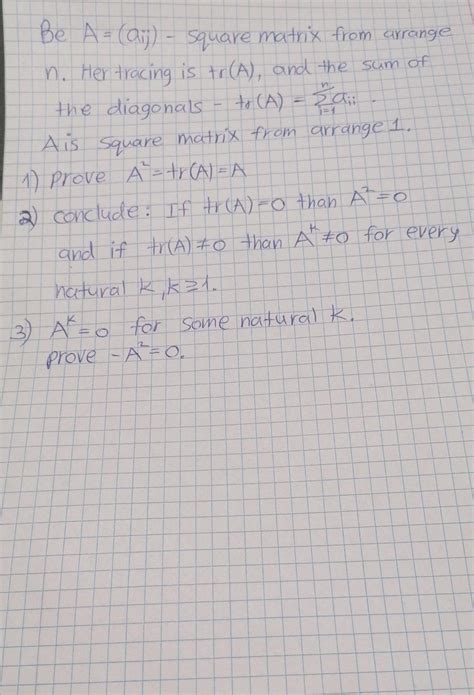 Be A = (aij) - square matrix from arrange
n. Her tracing is tr(A), and the sum of
the diagonals - tr(A) = n∑i=1 aii .
A is square matrix from arrange 1.
1) prove A² = tr(A) = A
2) conclude: If tr(A) = 0 than A² = 0
and if tr(A) ≠ 0 than Aᴷ ≠ 0 for every
natural k, k ≥ 1.
3) Aᴷ = 0 for some natural k.
prove - A² = 0.